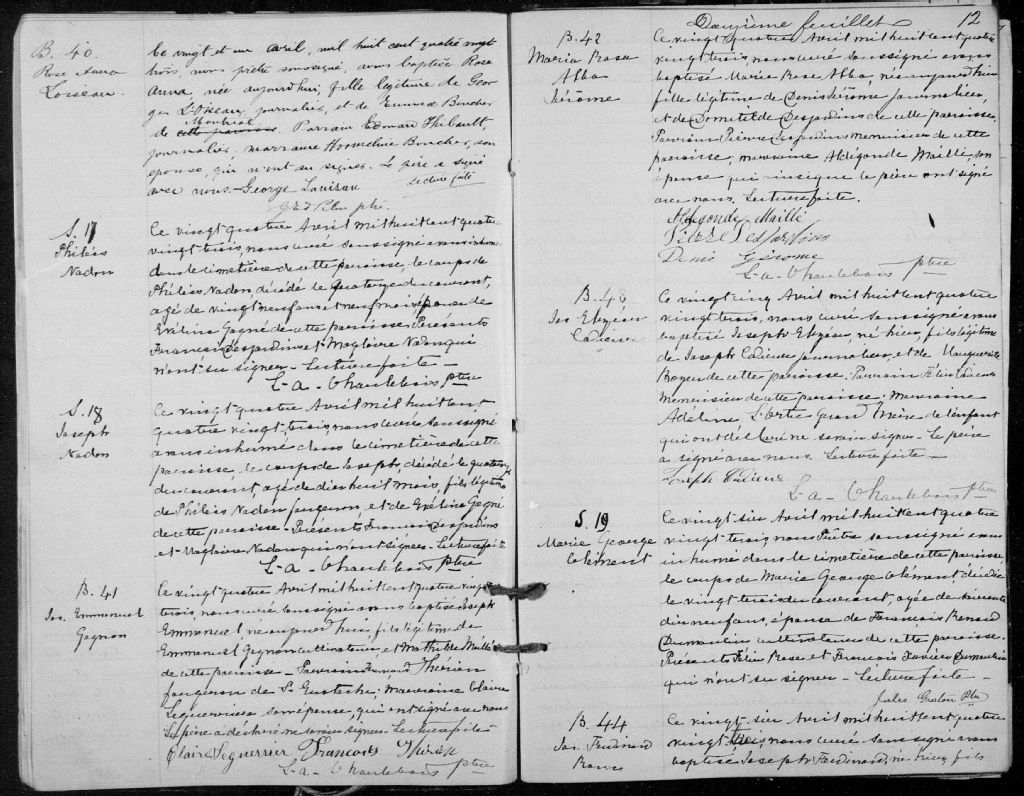 B. 40.
Rose Anna
Loiseau.
Ce vingt et un avril, mil huit cent quatre vingt
trois, nous prêtre soussigné, avons baptisé Rose
Anna, née aujourd'hui, fille légitime de Geor
ges L'Oiseau, journalier, et de Emma Boucher
Montréal
de cette paroisse. Parrain Edmond Thibault,
journalier, marraine Boucher, son
épouse, qui n'ont su signer. Le père a signé
avec nous. Lecture faite
George Louiseau
ptre.
S. 17
Philéas
Nadon
Ce vingt quatre Avril mil huit cent quatre
vingt trois, nous curé soussigné avons inhumé
dans le cimetière de cette paroisse, le corps de
Philéas Nadon décédé le quatorze du courant,
agé de vingt neuf ans et neuf mois, époux de
Evélina Gagné de cette paroisse. Présents
Francois Desjardins et Magloire Nadon qui
n'ont su signer. Lecture faite -
L-a- Chantebois ptre
S. 18
Joseph
Nadon
Ce vingt quatre Avril mil huit cent
quatre vingt trois, nous curé soussigné
avons inhumé dans le cimetière de cette
paroisse le corps de Joseph, décédé le quatorze
du courant, agé de dix huit mois, fils légitime
de Philéas Nadon forgeron, et de Evélina Gagné
de cette paroisse - Présents Francois Desjardins
et Magloire Nadon qui n'ont signer - Lecture faite
L-a- Chantebois ptre
B. 41
Jos. Emmanuel
Gagnon
Ce vingt quatre Avril mil huit cent quatre vingt
trois, nous curé soussigné avons baptisé Joseph
Emmanuel, né aujourd'hui, fils légitime de
Emmanuel Gagnon cultivateur, et Mathilde Maillé
de cette paroisse - Parrain Francois Thérien
forgeron de St Eustache; Marraine Claire
Leguerrier son épouse, qui ont signé avec nous
Le père a déclaré ne savoir signer. Lecture faite -
Claire Leguerrier Francois Therien
L-a- Chantebois ptre
Douzième feuillet
12
B. 42
Maria Rosa
Alba
Jérôme
Ce vingt quatre Avril mil huit cent quatre
vingt trois, nous curé soussigné avons
baptisé Marie Rose Alba, née aujourd'hui
fille légitime de Denis Jérôme journalier,
et de Domitilde Desjardins de cette paroisse.
Parrain Pierre Desjardins menuisier de cette
paroisse; marraine Aldégonde Maillé, son
épouse qui le père ont signé
avec nous. Lecture faite.
Aldegonde Maillé
Pierre Desjardins
Denis Gérome
L-a- Chantebois ptre
B. 43
Jos Elzéar
Ladieu
Ce vingt cinq Avril mil huit cent quatre
vingt trois, nous curé soussigné avons
baptisé Joseph Elzéar, né hier, fils légitime
de Joseph journalier, et de Marguerite
Boyer de cette paroisse. Parrain Félix
Menuisier de cette paroisse; Marraine
Adéline grand Mère de l'enfant
qui ont déclaré ne savoir signer - Le père
a signé avec nous. Lecture faite -
Joseph
L-a- Chantebois ptre
S. 19
Marie George
Clément
Ce vingt six Avril mil huit cent quatre
vingt trois, nous Prêtre soussigné avons
inhumé dans le cimetière de cette paroisse
le corps de Marie George Clément décédée
le vingt trois du courant, agée de soixante
dix neuf ans, épouse de Francois Renaud
Dumoulin cultivateur de cette paroisse.
Présents Félix Rose et Francois Xavier Dumoulin
qui n'ont su signer - Lecture faite -
Jules Graton Ptre
B. 44
Jos. Ferdinand
Ce vingt six Avril mil huit cent quatre
vingt trois, nous curé soussigné avons
baptisé Joseph Ferdinand, né hier, fils